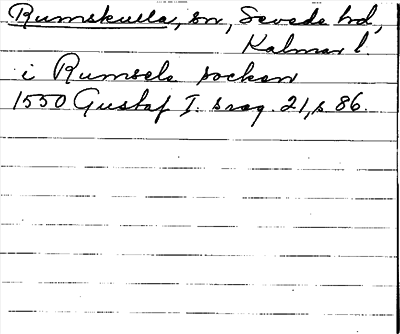 Rumskulla, sn, Sevede hd,
Kalmar l.
i Rumsela socken
1550 Gustaf I. s reg. 21, s 86.